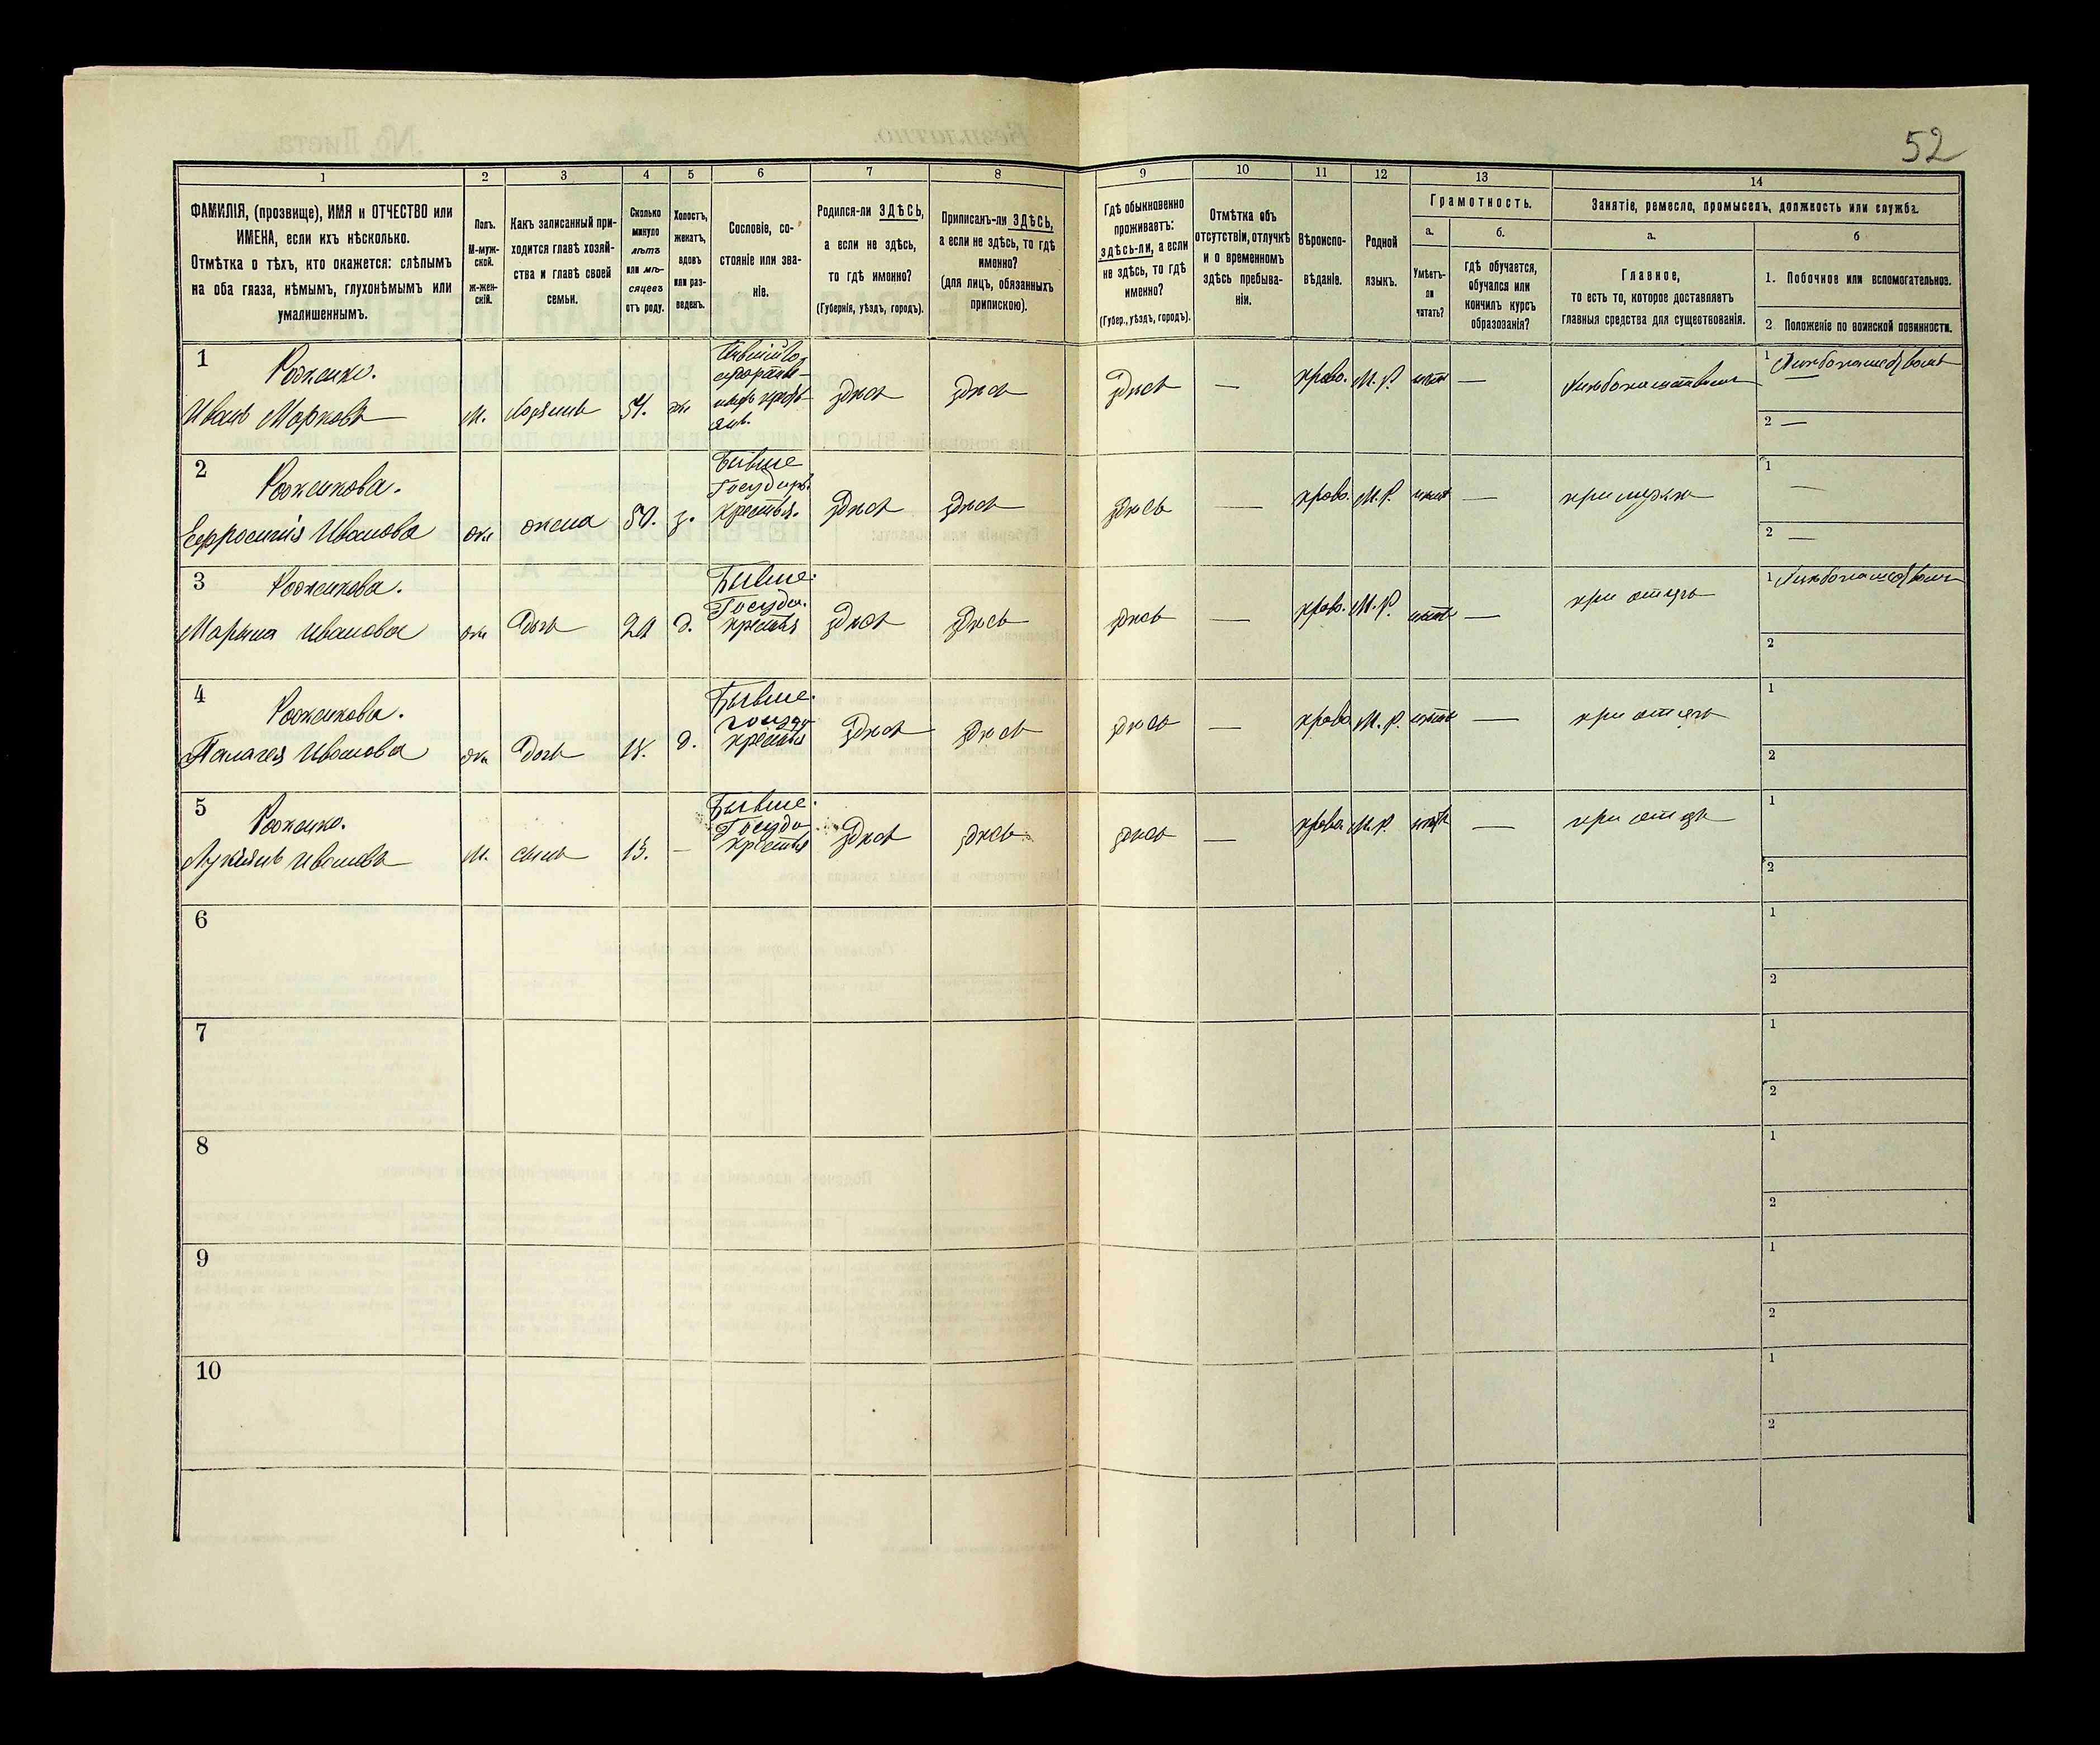 52
1 2 3 4 5 6 7 8 9 10 11 12 13 14
ФАМИЛІЯ, (прозвище), ИМЯ и ОТЧЕСТВО или
ИМЕНА, если ихъ нѣсколько.
Отмѣтка о тѣхъ, кто окажется: слѣпымъ
на оба глаза, нѣмымъ, глухонѣмымъ или
умалишеннымъ.
Полъ.
М-муж-
ской.
ж-жен-
скій.
Какъ записанный при-
ходится главѣ хозяй-
ства и главѣ своей
семьи.
Сколько
минуло
лѣтъ
или мѣ-
сяцевъ
отъ роду.
Холостъ,
женатъ,
вдовъ
или раз-
веденъ.
Сословіе, со-
стояніе или зва-
ніе.
Родился-ли ЗДѢСЬ,
а если не здѣсь,
то гдѣ именно?
(Губернія, уѣздъ, городъ).
Приписанъ-ли ЗДѢСЬ,
а если не здѣсь, то гдѣ
именно?
(для лицъ, обязанныхъ
припискою).
Гдѣ обыкновенно
проживаетъ:
здѣсь-ли, а если
не здѣсь, то гдѣ
именно?
(Губер., уѣздъ, городъ).
Отмѣтка объ
отсутствіи, отлучкѣ
и о временномъ
здѣсь пребыва-
ніи.
Вѣроиспо-
вѣданіе.
Родной
языкъ.
Грамотность.
а.
Умѣетъ-
ли
читать?
б.
Гдѣ обучается,
обучался или
кончилъ курсъ
образованія?
Занятіе, ремесло, промыселъ, должность или служба.
а.
Главное,
то есть то, которое доставляетъ
главныя средства для существованія.
б
1. Побочное или вспомогательное.
2. Положеніе по воинской повинности.
1
Иванъ Марковъ
М. 54.
здѣсь здѣсь здѣсь — право. М. Р. нѣтъ — Хлѣбопашество
1
2 —
2
Роженкова.
Ефросинія Иванова
жена 50. з.
Бывше
Государ.
крестья.
здѣсь здѣсь здѣсь — право. М. Р. нѣтъ — при мужѣ
1 —
2 —
3
Роженкова.
Марына Иванова
дочь д.
Бывше.
Госуда.
крестья
здѣсь здѣсь здѣсь — право. М. Р. нѣтъ — при отцѣ
1
2
4
Роженкова.
Палагея Иванова
дочь 18. д.
Бывше.
Госуда
крестья
здѣсь здѣсь здѣсь — право М. Р. нѣтъ — при отцѣ
1
2
5
Лукіянъ Ивановъ
М. сынъ 13. —
Бывше.
Госуда
крестья
здѣсь здѣсь здѣсь — право. М. Р. нѣтъ — при отцѣ
1
2
6
1
2
7
1
2
8
1
2
9
1
2
10
1
2